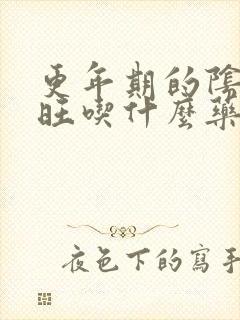 更年期的陰
旺喫什麼藥
夜色下的寫手